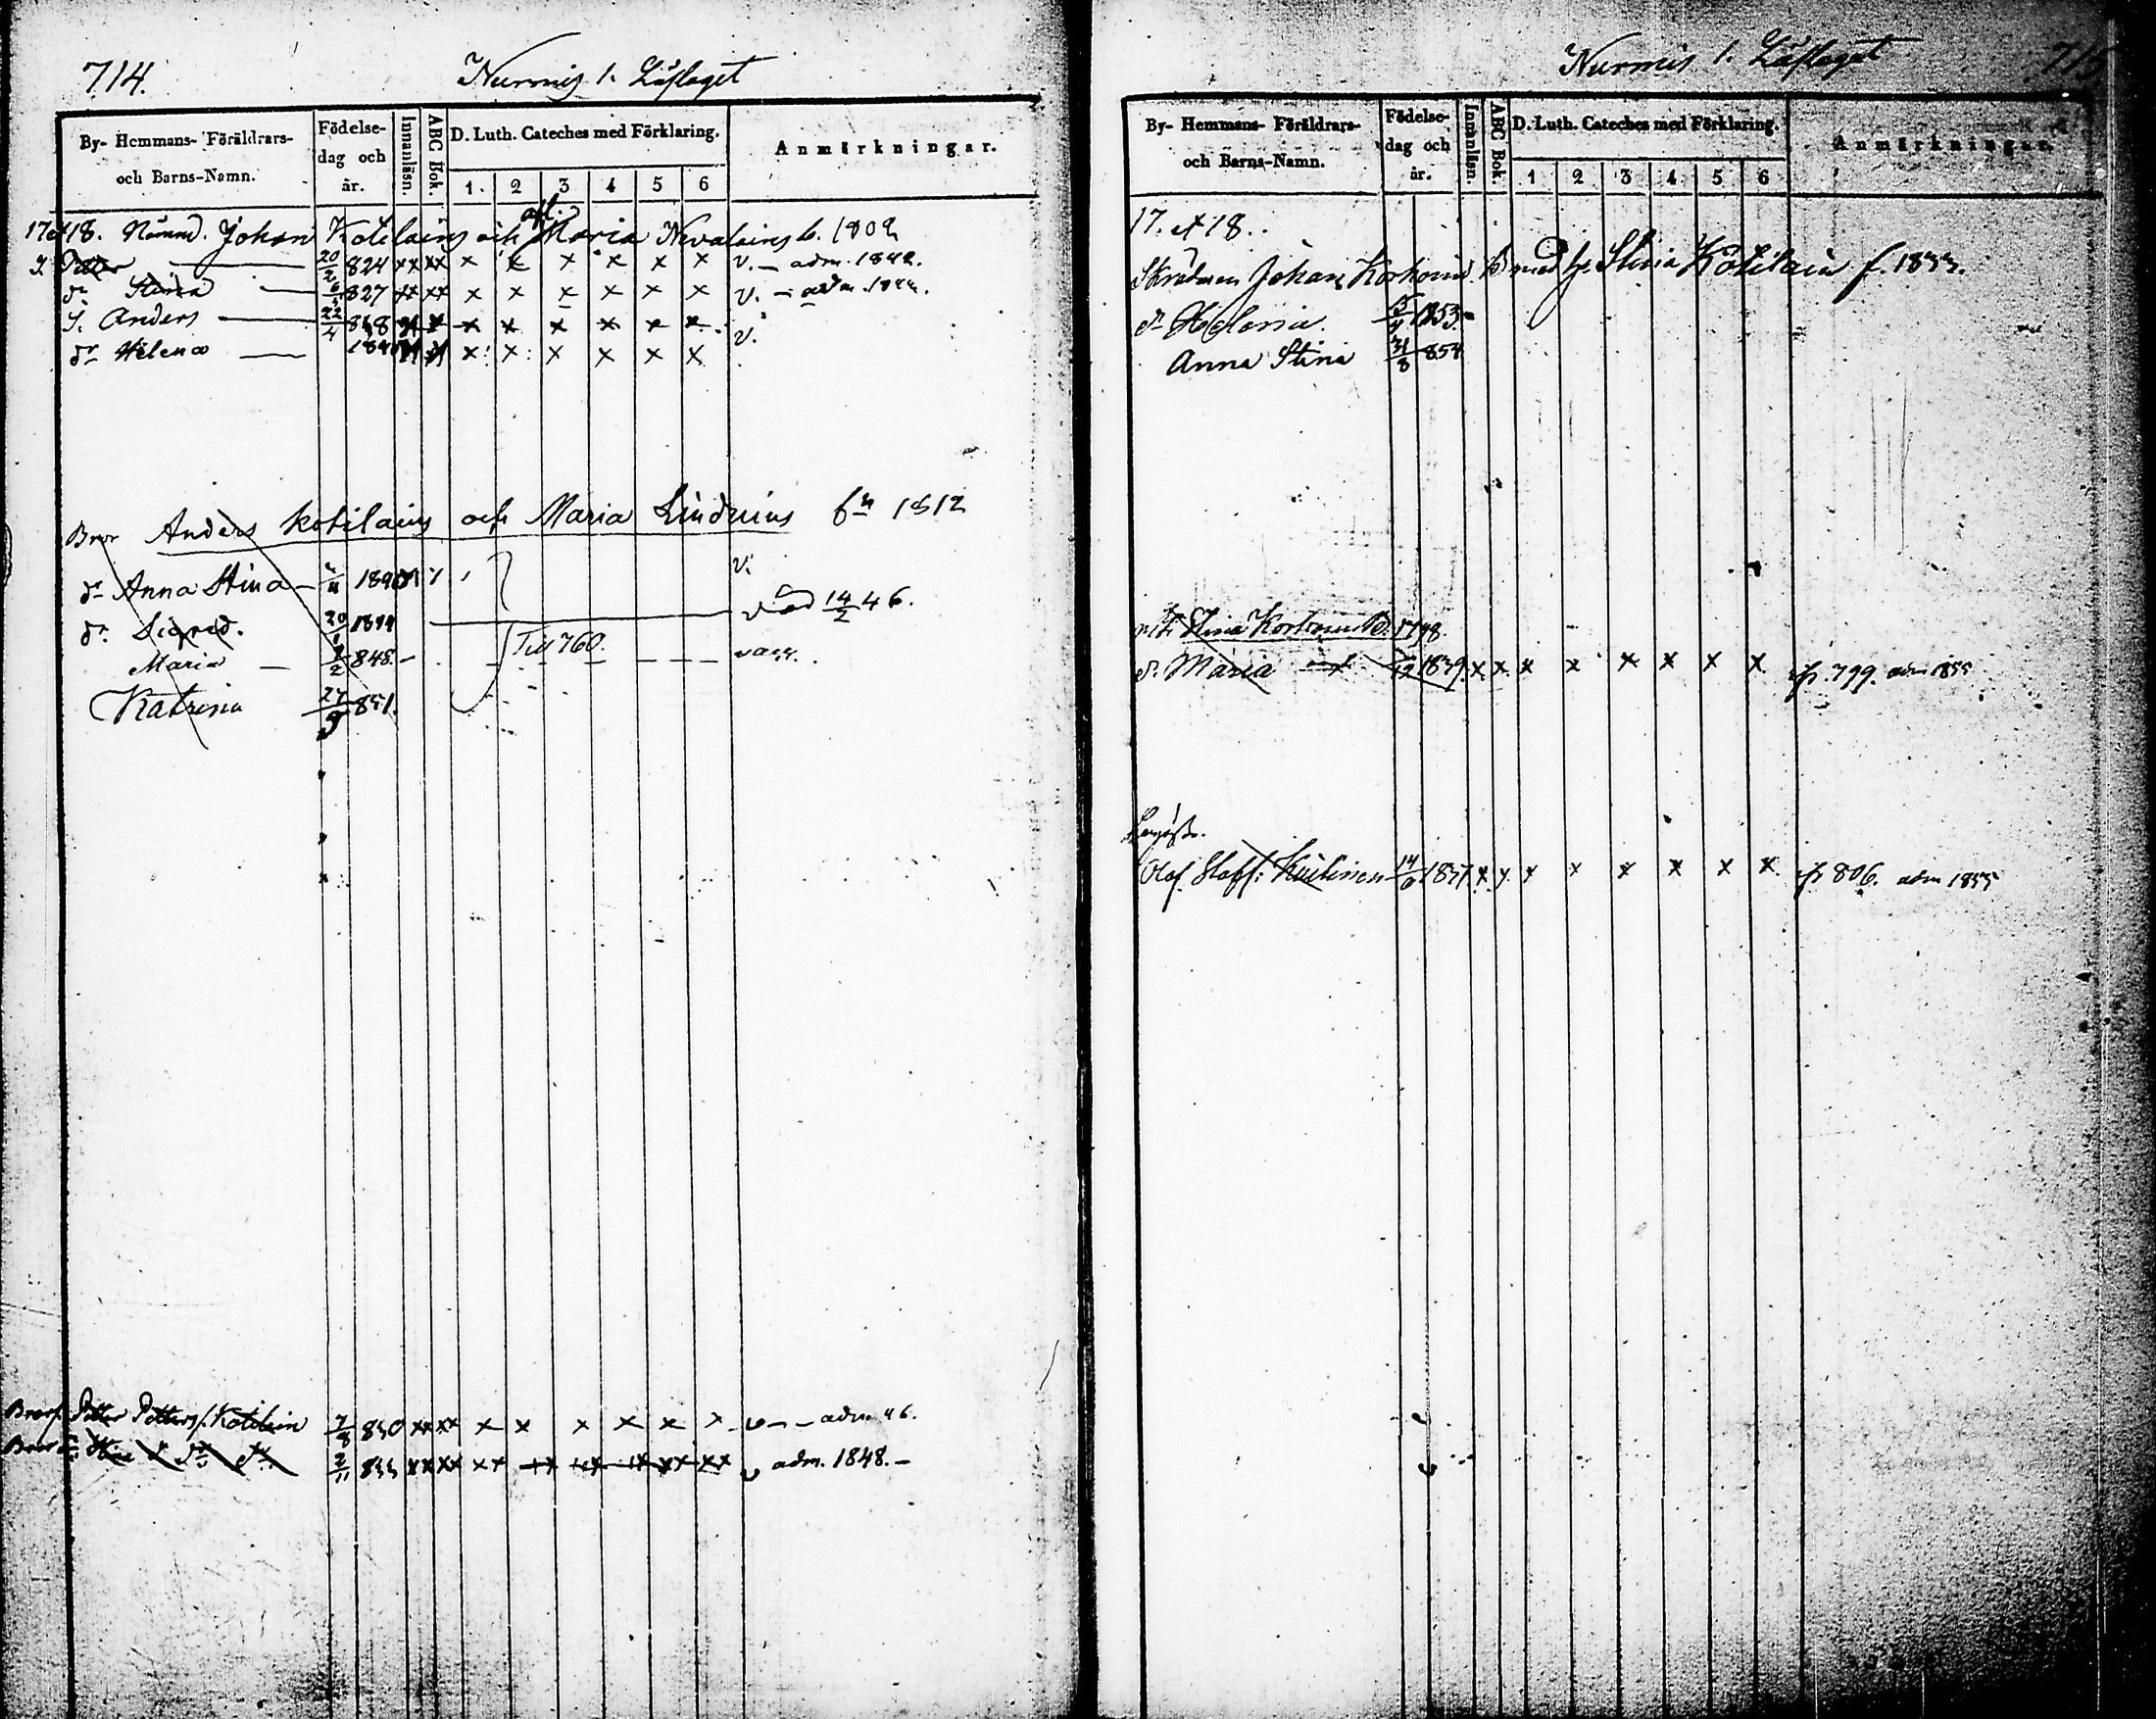 714.
Nurmis 1. Läslaget
By- Hemmans- Föräldrars- och Barns-Namn.
Födelse- dag och år.
Innanläsn.
ABC Bok.
D. Luth. Cateches med Förklaring.
1. 2 3 4 5 6
Anmärkningar.
17 et 18. Nämnd. Johan Kotilains och Maria Nevalains b. 1802
S. Petter 20/2 824 xx xx x x x x x x v. – adm. 1842.
dr Stina 827 xx xx x x x x x x v. – adm.
S. Anders 22/4 x x x x x x v.
dr Helena x x x x x x
Bror Anders Kotilains och Maria Lindruins 1812
dr Anna Stina v.
dr Sigrid. 20/1 död 14/2 46.
Maria 848. – Till 760. vacc.
Katrina 27/9 851.
Brors. Petter Petterss. Kotilain 7/8 830 xx xx x x x x x x v – – adm. 46.
Stina dr 2/11 833 xx xx xx xx xx xx xx xx v adm. 1848. –
Nurmis 1. Läslaget
715
By- Hemmans- Föräldrars- och Barns-Namn.
Födelse- dag och år.
Innanläsn.
ABC Bok.
D. Luth. Cateches med Förklaring.
1 2 3 4 5 6
Anmärkningar.
17. et 18.
Johan Korhonen med h. Stina Kotilain f. 1833.
dr Helena. 1853
Anna Stina 31/8 854
Stina Korhonen
dr Maria 1839. x x x x x x x x p. 799. adm 1855
Olof Staff: 14/6 1837 x x x x x x x x p 806. adm 1855